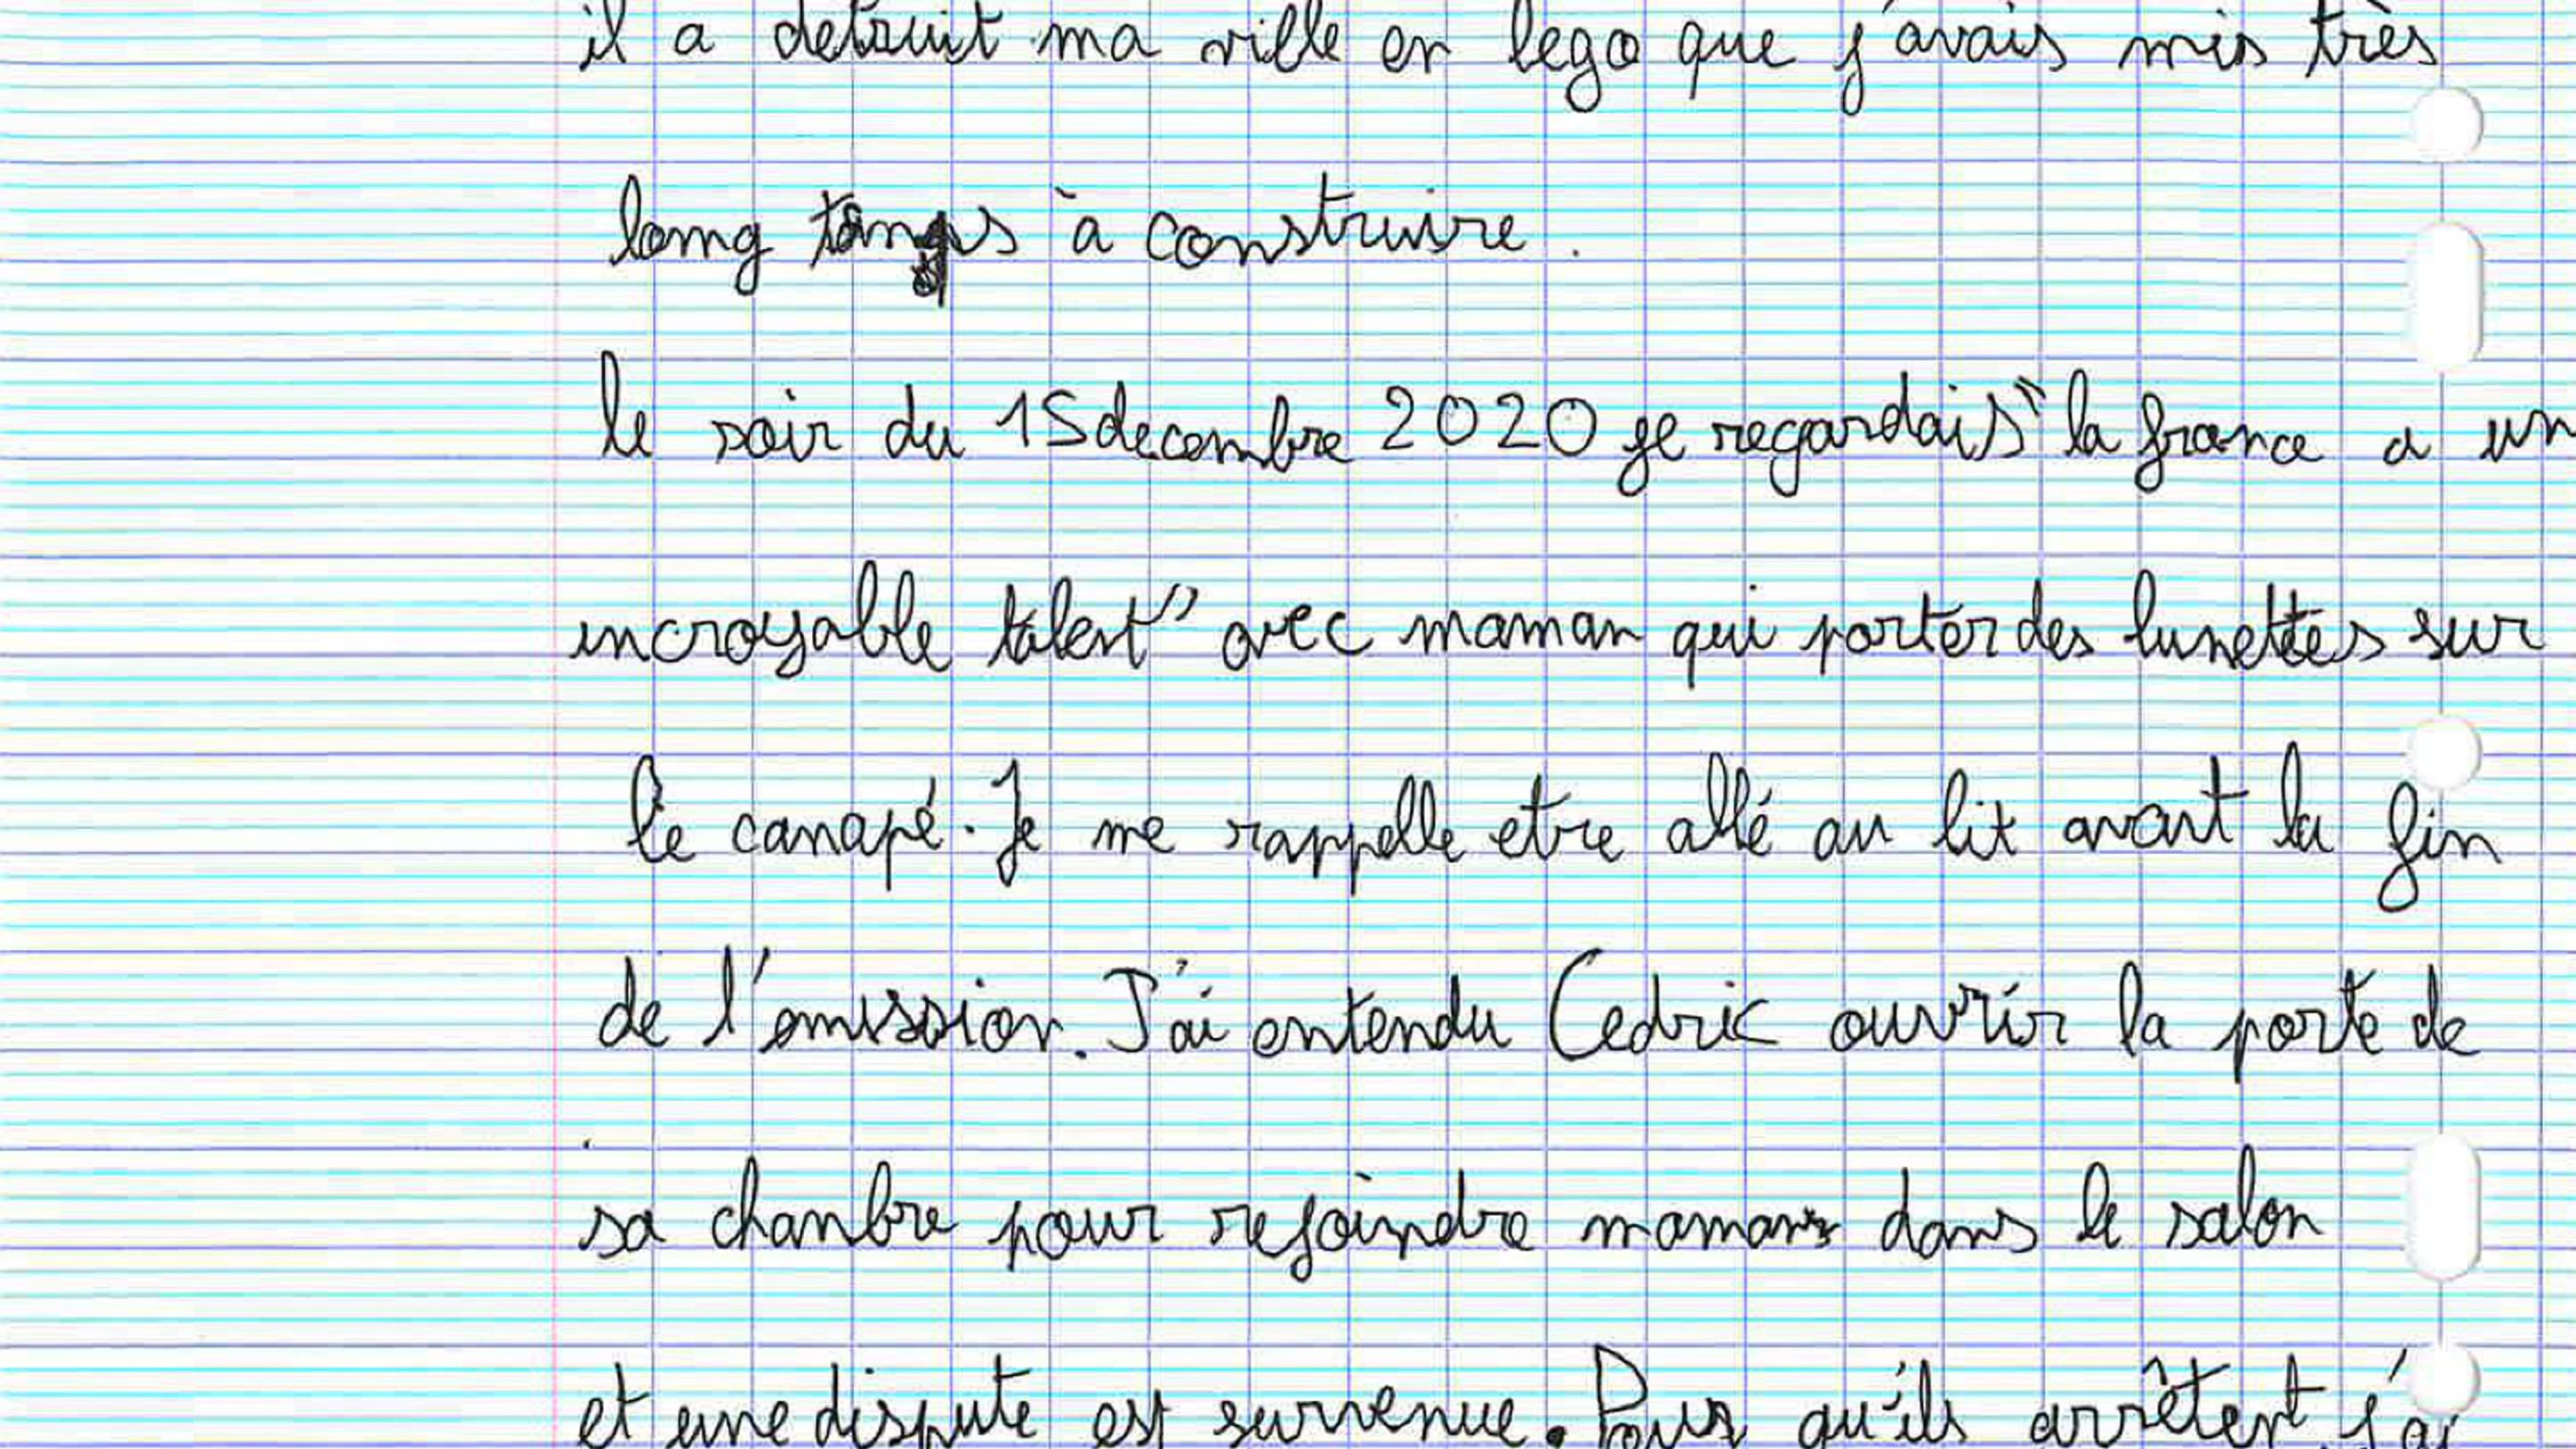 il a detruit ma ville en lego que j'avais mis très
long temps à construire.
le soir du 15 decembre 2020 je regardais "la france a un
incroyable talent" avec maman qui porter des lunettes sur
le canapé. Je me rappelle etre allé au lit avant la fin
de l'emission. J'ai entendu Cedric ouvrir la porte de
sa chanbre pour rejoindre maman dans le salon
et une dispute est survenue. Pour qu'ils arrêtent j'ai